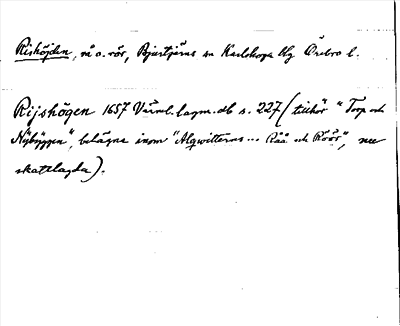 Rishöjden, rå o. rör, Bjurtjärns sn Karlskoga Bg Örebro l.
Rijshögen 1657 Värml. lagm. db s. 227 (tillhör "Torp och
Nybyggen", belägne inom "Algwitterns ... Råå och Röör", nu
skattlagda).